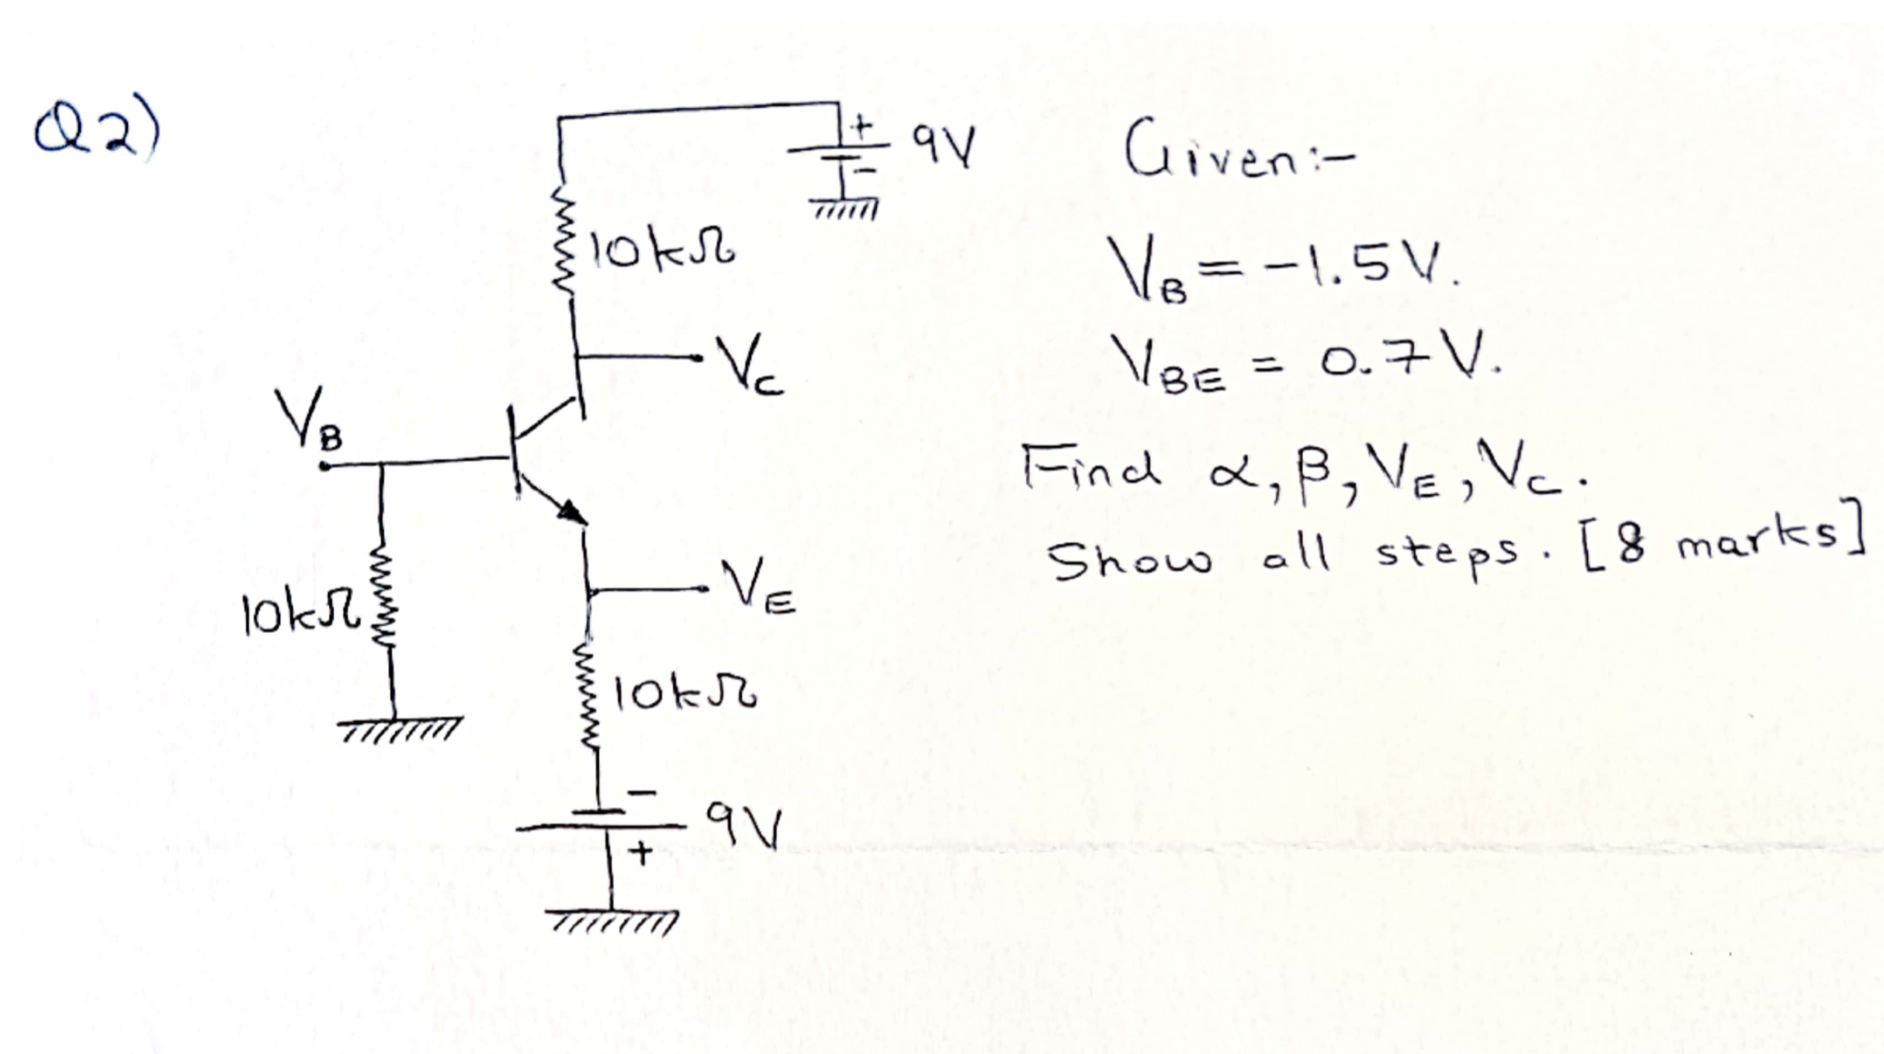 Q2)
+
9V
-
10kΩ
Vc
VB
10kΩ
VE
10kΩ
-
9V
+
Given:-
VB = -1.5V.
VBE = 0.7V.
Find α, β, VE, Vc.
Show all steps. [8 marks]